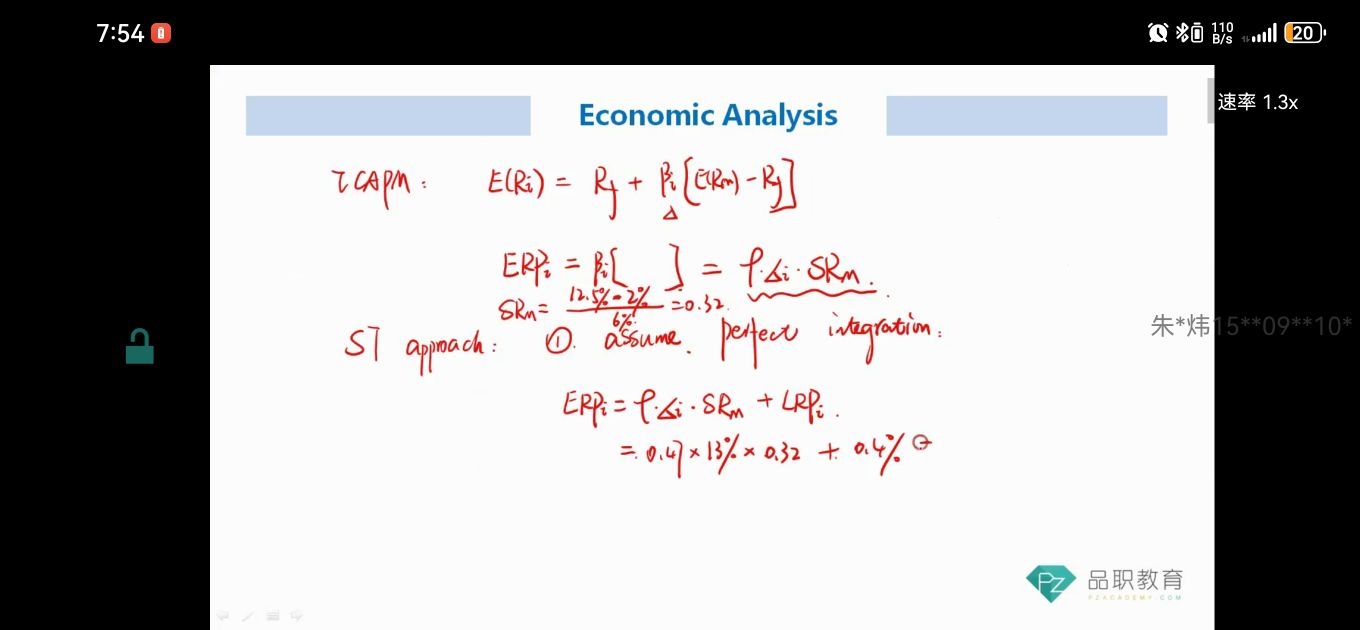 7:54
110 B/s
20
速率 1.3x
Economic Analysis
ICAPM: E(Ri) = Rf + βi [E(Rm) - Rf]
ERPi = βi[ ] = ρ·σi·SRm.
SRm = 12.5% - 2% / 6% = 0.32.
朱*炜15**09**10*
ST approach: ①. assume. perfect integration:
ERPi = ρ·σi·SRm + LRPi.
= 0.47 × 13% × 0.32 + 0.4%
PZ 品职教育
PZACADEMY.COM